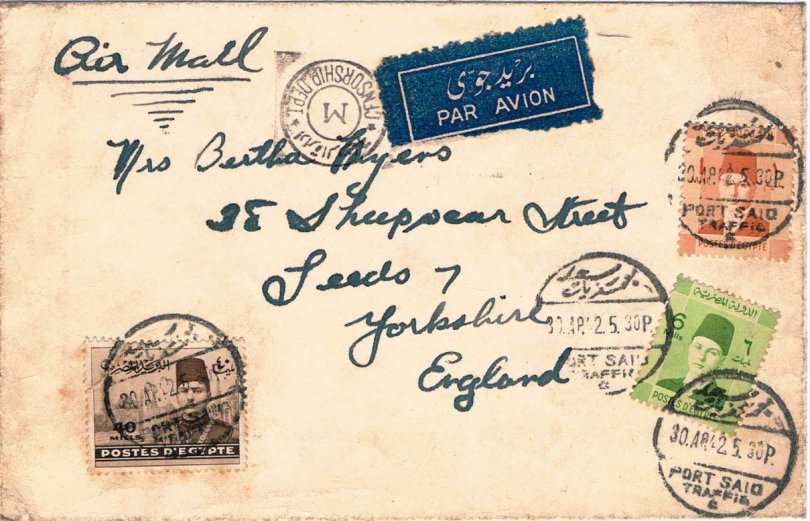 Air Mail
CENSORSHIP.DEPT.
M
بريد جوي
PAR AVION
Mrs Bertha Myers
38 Sheepscar Street
Leeds 7
Yorkshire
England
30.AP.42.5.30P.
PORT SAID
TRAFFIC
&
POSTES D'EGYPTE
بور سعيد
30.AP.42.5.30P.
PORT SAID
TRAFFIC
&
الدولة المصرية
6
Mills
٦
مليمات
POSTES D'EGYPTE
30.AP.42.5.30P.
PORT SAID
TRAFFIC
&
الدولة المصرية
٤٠
مليم
40
MILLS
POSTES D'EGYPTE